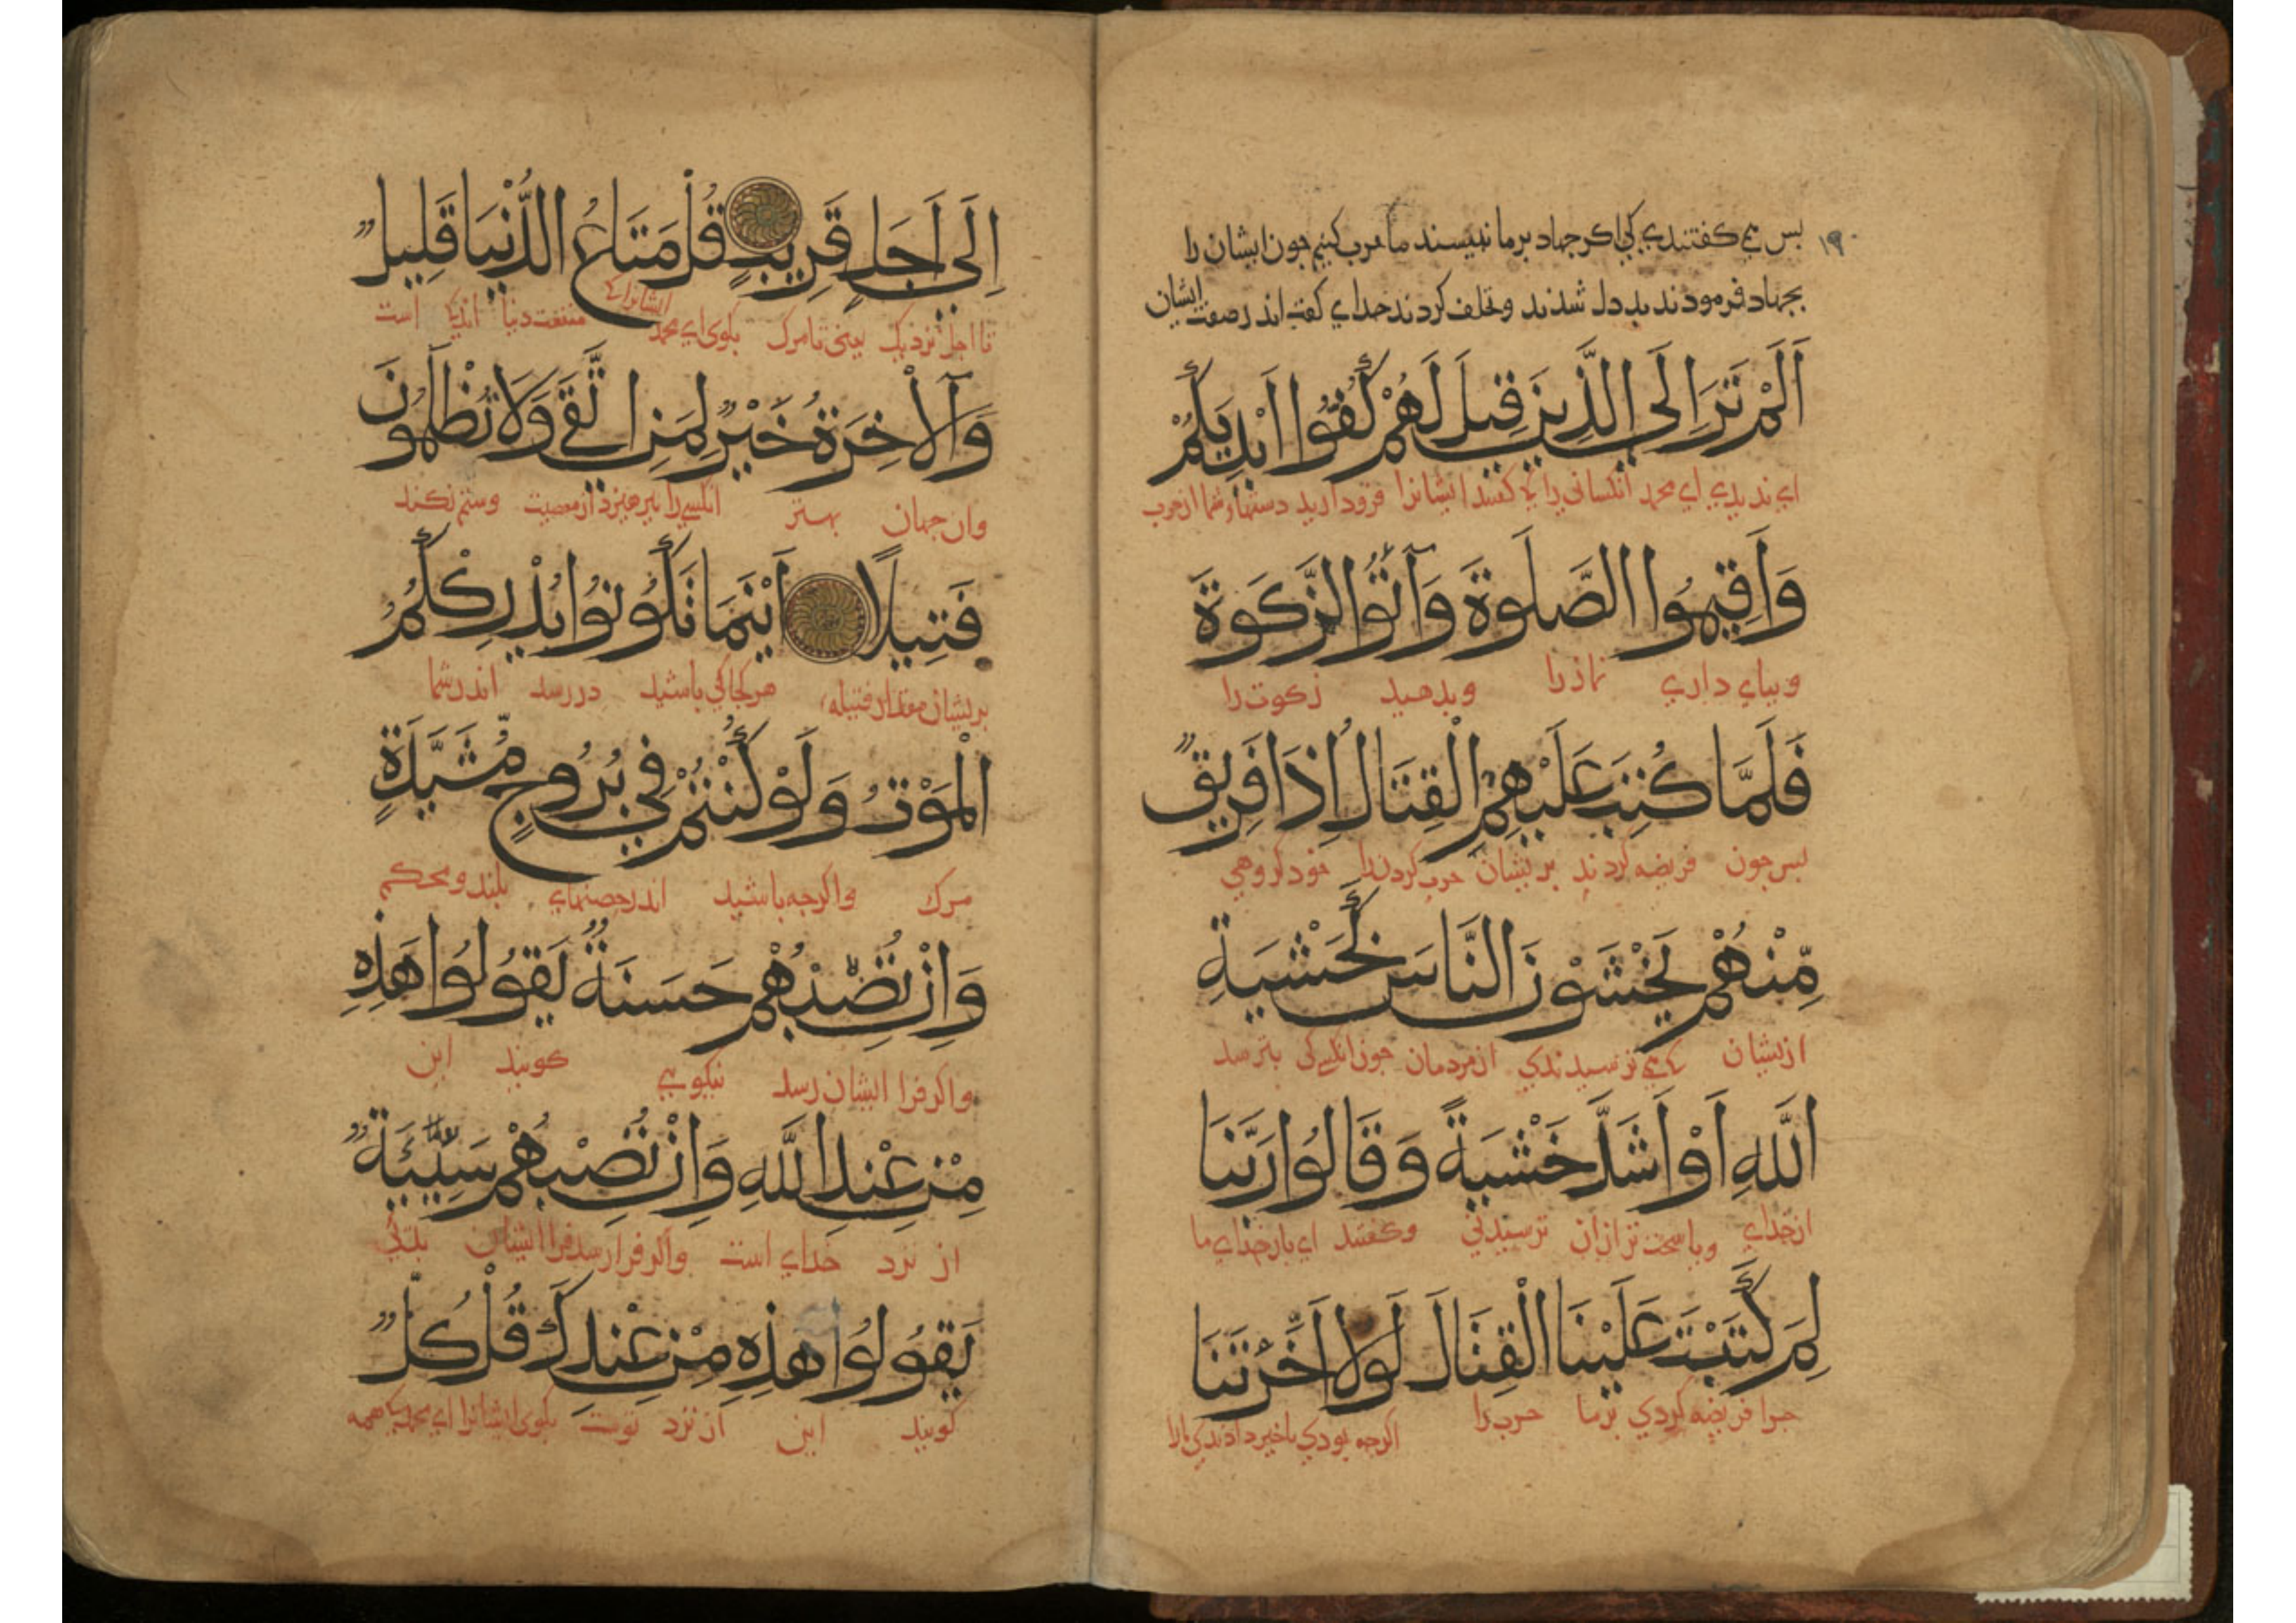 ١٩٠
بس می کفتندی کی اکر جهاد بر ما نبیسند ما حرب کنیم جون ایشان را
بجهاد فرمودند بد دل شدند و تخلف کردند خدای کفت اندر صفت ایشان
اَلَمْ تَرَ اِلَى الَّذِينَ قِيلَ لَهُمْ كُفُّوا اَيْدِيَكُمْ
ای ندیدی ای محمد آنکسانی را کی کفتند ایشانرا فرو دارید دستهاء شما از حرب
وَاَقِيمُوا الصَّلٰوةَ وَآتُوا الزَّكٰوةَ
وبپای داری نماز را وبدهید زکوت را
فَلَمَّا كُتِبَ عَلَيْهِمُ الْقِتَالُ اِذَا فَرِيقٌ
بس جون فریضه کردند بریشان حرب کردن را خود کروهی
مِّنْهُمْ يَخْشَوْنَ النَّاسَ كَخَشْيَةِ
ازیشان می ترسیدندی از مردمان جون انکسی کی بترسد
اللّٰهِ اَوْ اَشَدَّ خَشْيَةً وَقَالُوا رَبَّنَا
از خدای ویا سخت تر ازان ترسیدنی وکفتند ای بار خدای ما
لِمَ كَتَبْتَ عَلَيْنَا الْقِتَالَ لَوْلَا اَخَّرْتَنَا
جرا فریضه کردی بر ما حرب را اکر جه بودی تاخیر دادندی
اِلَى اَجَلٍ قَرِيبٍ قُلْ مَتَاعُ الدُّنْيَا قَلِيلٌ
تا اجل نزدیک یعنی تا مرک بکوی ای محمد ایشانرا کی منفعت دنیا اندکی است
وَالْآخِرَةُ خَيْرٌ لِمَنِ اتَّقَى وَلَا تُظْلَمُونَ
وان جهان بهتر انکسی را بپرهیزد از معصیت وستم نکنند
فَتِيلًا اَيْنَمَا تَكُونُوا يُدْرِكْكُمُ
بریشان مقدار فتیله هر کجا کی باشید در رسد اندر شما
الْمَوْتُ وَلَوْ كُنْتُمْ فِي بُرُوجٍ مُشَيَّدَةٍ
مرک واکرجه باشید اندر حصنهای بلند ومحکم
وَاِنْ تُصِبْهُمْ حَسَنَةٌ يَقُولُوا هَذِهِ
واکر فرا ایشان رسد نیکویی کویند این
مِنْ عِنْدِ اللّٰهِ وَاِنْ تُصِبْهُمْ سَيِّئَةٌ
از نزد خدای است واکر فرا رسد فرا ایشان بدئی
يَقُولُوا هَذِهِ مِنْ عِنْدِكَ قُلْ كُلٌّ
کویند این از نزد توست بکوی ایشانرا ای محمد کی همه